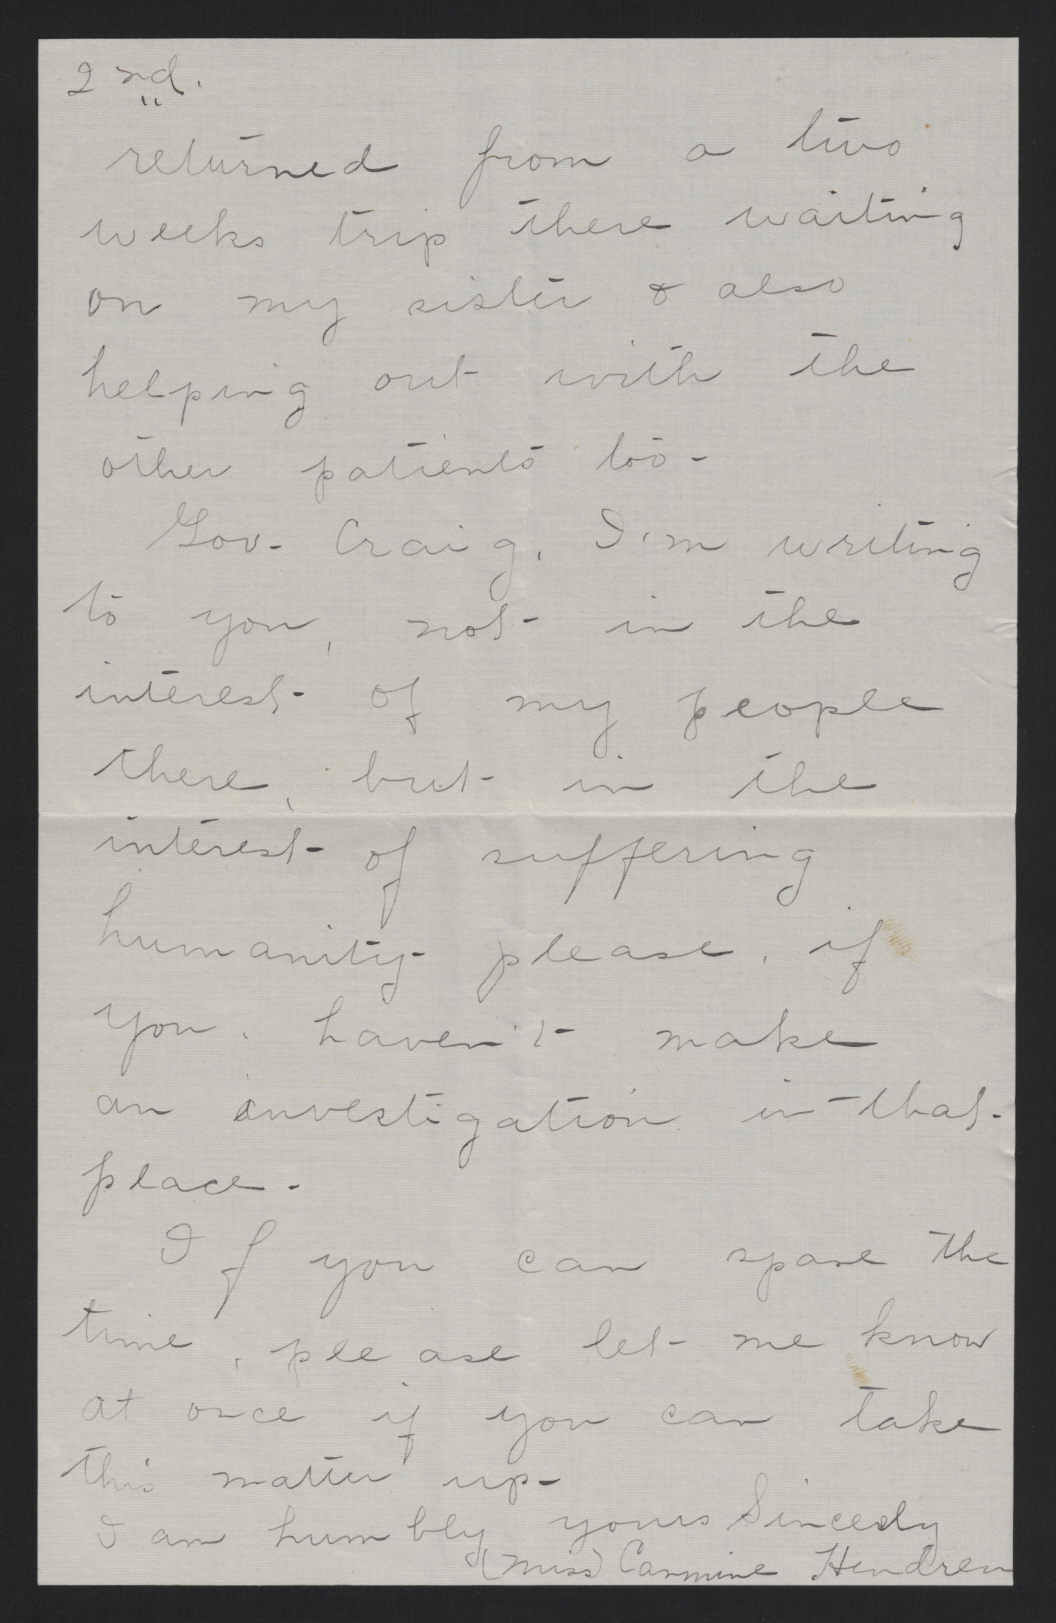 2nd.
"
returned from a two
weeks trip there waiting
on my sister & also
helping out with the
other patients too-
Gov. Craig, I'm writing
to you, not in the
interest of my people
there, but in the
interest of suffering
humanity please, if
you, haven't make
an investigation in that
place.
If you can spare the
time, please let me know
at once if you can take
this matter up-
I am humbly yours Sincerly
(Miss) Carmine Hendren